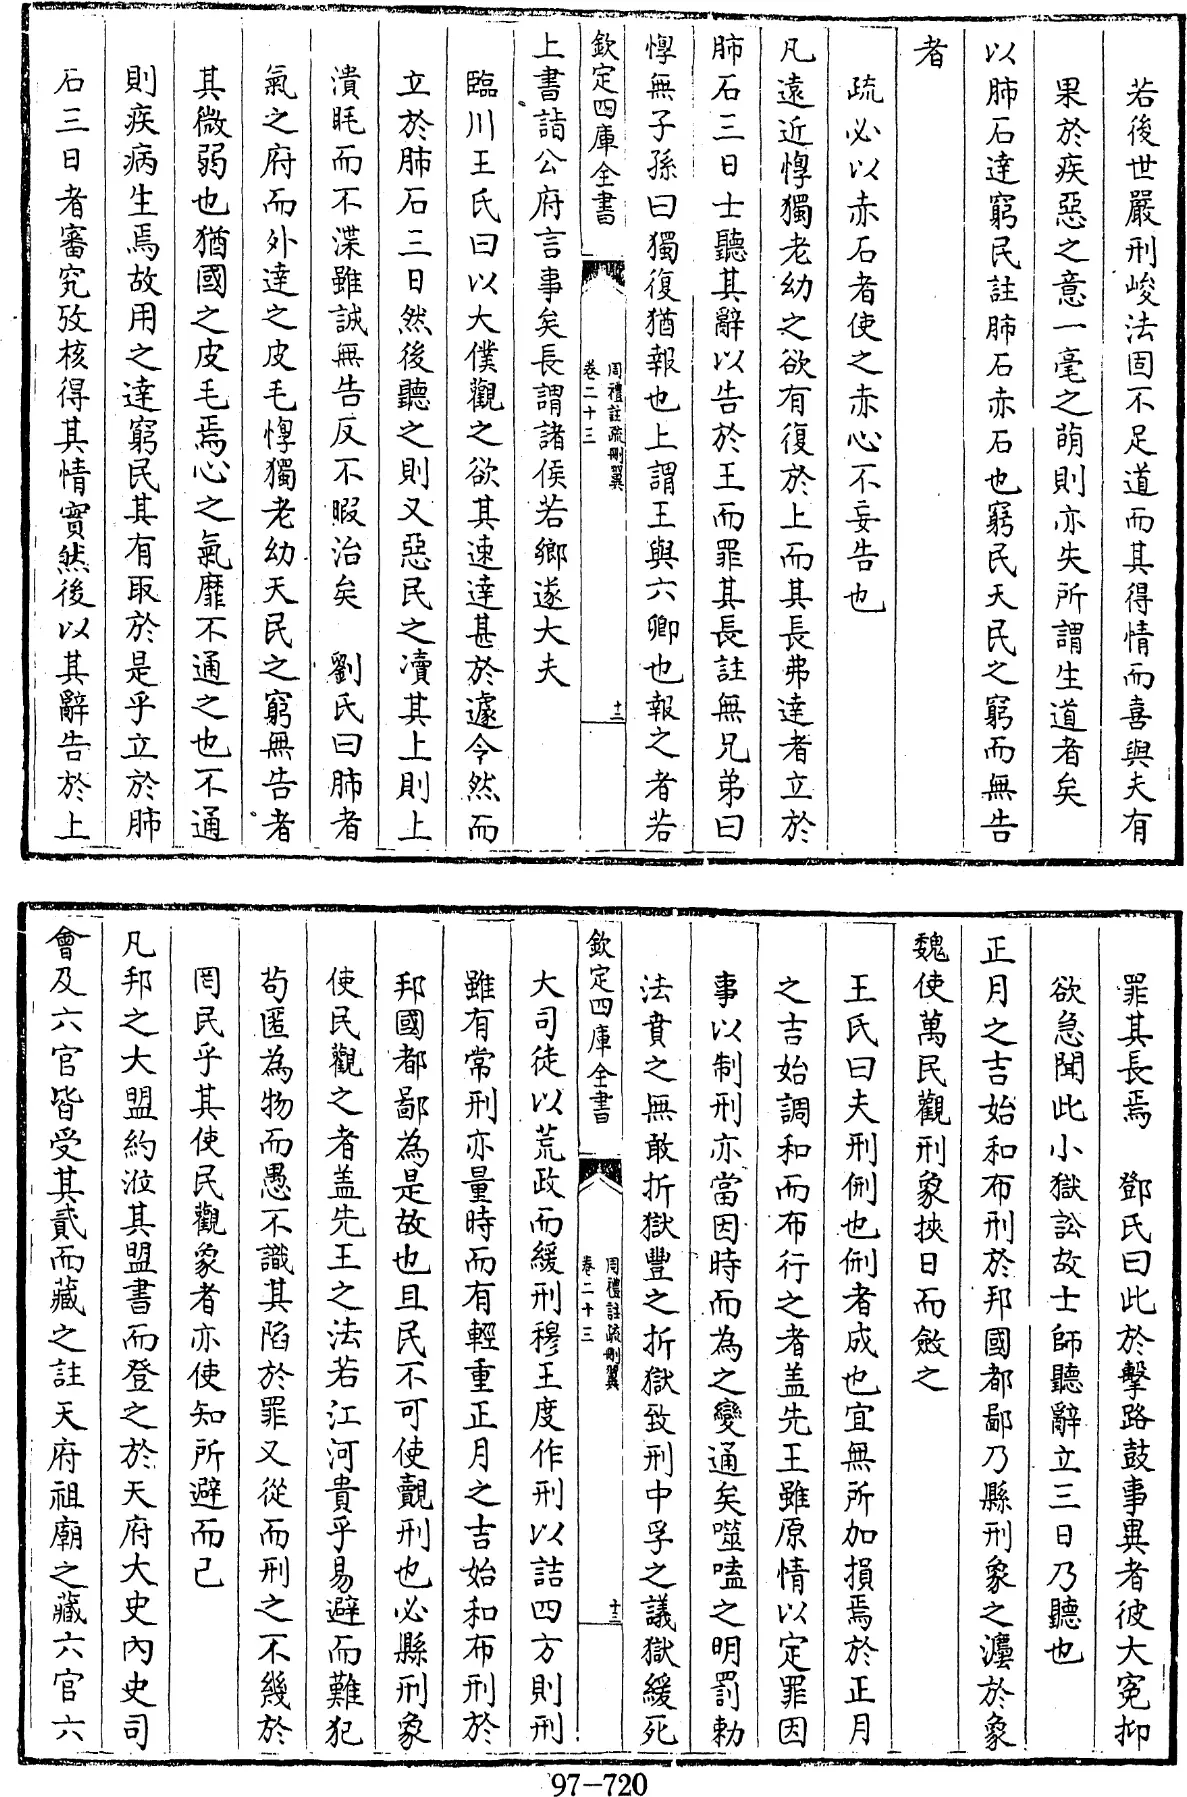 若後世嚴刑峻法固不足道而其得情而喜與夫有
果於疾惡之意一毫之萌則亦失所謂生道者矣
以肺石達窮民註肺石赤石也窮民天民之窮而無告
者
疏必以赤石者使之赤心不妄告也
凡遠近惸獨老幼之欲有復於上而其長弗達者立於
肺石三日士聽其辭以告於王而罪其長註無兄弟曰
惸無子孫曰獨復猶報也上謂王與六卿也報之者若
欽定四庫全書
周禮註疏刪翼
卷二十三
十二
上書詣公府言事矣長謂諸侯若鄉遂大夫
臨川王氏曰以大僕觀之欲其速達甚於遽令然而
立於肺石三日然後聽之則又惡民之瀆其上則上
潰眊而不渫雖誠無告反不暇治矣 劉氏曰肺者
氣之府而外達之皮毛惸獨老幼天民之窮無告者
其微弱也猶國之皮毛焉心之氣靡不通之也不通
則疾病生焉故用之達窮民其有取於是乎立於肺
石三日者審究攷核得其情實然後以其辭告於上
罪其長焉 鄧氏曰此於擊路鼓事異者彼大冤抑
欲急聞此小獄訟故士師聽辭立三日乃聽也
正月之吉始和布刑於邦國都鄙乃縣刑象之灋於象
魏使萬民觀刑象挾日而斂之
王氏曰夫刑侀也侀者成也宜無所加損焉於正月
之吉始調和而布行之者盖先王雖原情以定罪因
事以制刑亦當因時而為之變通矣噬嗑之明罰勅
法賁之無敢折獄豐之折獄致刑中孚之議獄緩死
欽定四庫全書
周禮註疏刪翼
卷二十三
十三
大司徒以荒政而緩刑穆王度作刑以詰四方則刑
雖有常刑亦量時而有輕重正月之吉始和布刑於
邦國都鄙為是故也且民不可使覿刑也必縣刑象
使民觀之者盖先王之法若江河貴乎易避而難犯
茍匿為物而愚不識其陷於罪又從而刑之不幾於
罔民乎其使民觀象者亦使知所避而已
凡邦之大盟約涖其盟書而登之於天府大史內史司
會及六官皆受其貳而藏之註天府祖廟之藏六官六
97-720